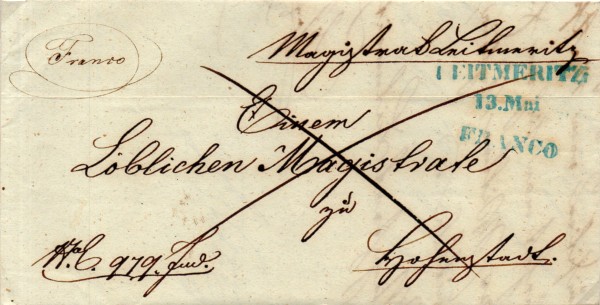 Franco
Magistrat Leitmeritz
LEITMERITZ
13. Mai
FRANCO
Einem
Löblichen Magistrate
zu
979. Jud.
Hohenstadt.